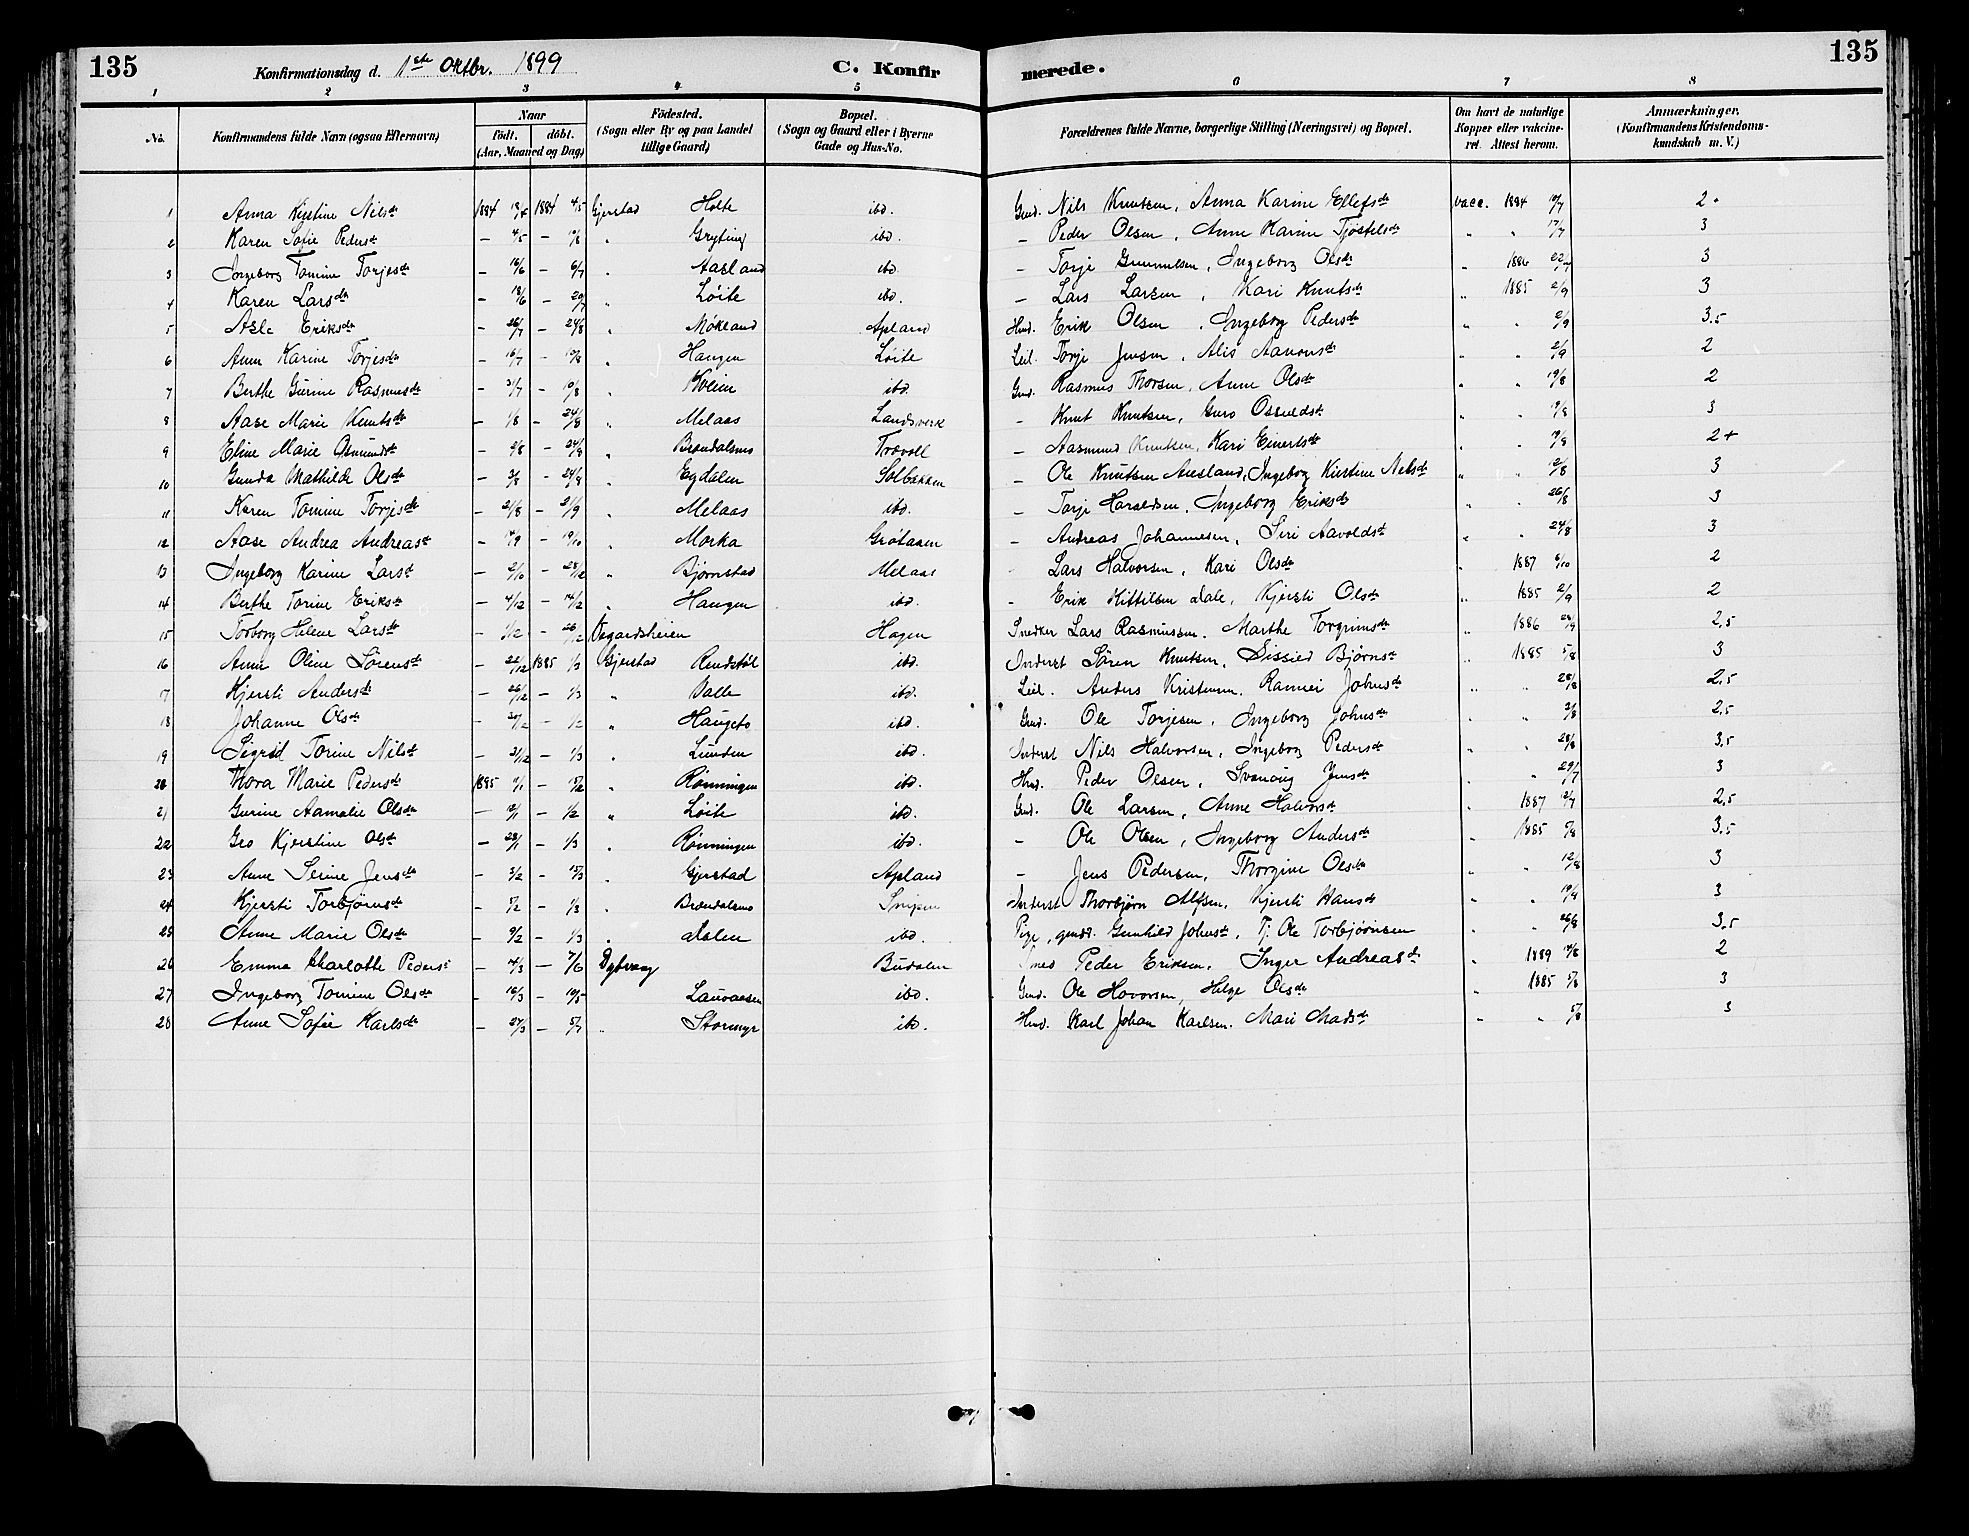 135 Konfirmationsdag d. 1ste Oktbr. 1899 C. Konfir merede. 135
1 2 3 4 5 6 7 8
No. Konfirmandens fulde Navn (ogsaa Efternavn) Naar födt. döbt. (Aar, Maaned og Dag) Födested. (Sogn eller By og paa Landet tillige Gaard) Bopæl. (Sogn og Gaard eller i Byerne Gade og Hus-No. Forældrenes fulde Navne, borgerlige Stilling (Næringsvei) og Bopæl. Om havt de naturlige Kopper eller vakcineret. Attest herom. Anmærkninger. (Konfirmandens Kristendomskundskab m. V.)
1 Anna Kistine Nilsdt 1884 18/4 1884 4/5 Gjerstad Holte ibd. Gmd. Nils Knutsen, Anna Karine Ellefsdt vacc. 1884 10/7 2
2 Karen Sofie Pedersdt — 4/5 — 10/8 " Gryting ibd. — Peder Olsen, Anne Karine Tjöstelsdt " " 17/7 3
3 Ingeborg Tomine Torjesdt — 16/6 — 6/7 " Aasland ibd. — Torje Gunnulsen, Ingeborg Olsdt " 1886 22/7 3
4 Karen Larsdtr — 18/6 — 20/7 " Löite ibd. — Lars Larsen, Kari Knutsdt " 1885 2/9 3
5 Asle Eriksdtr — 26/7 — 24/8 " Mökland Apland Hmd. Erik Olsen, Ingeborg Pedersdtr " " 2/9 3.5
6 Anne Karine Torjesdtr — 16/7 — 10/8 " Haugen Löite Leil. Torje Jensen, Alis Aanonsdt " " 2/9 2
7 Berthe Gurine Rasmusdtr — 31/7 — 10/8 " Kveim ibd. Gmd. Rasmus Thorsen, Anne Olsdtr " " 19/8 2
8 Aase Marie Knutsdtr — 1/8 — 24/8 " Melaas Landsverk — Knut Knutsen, Guro Osuldsdt. " " 19/8 3
9 Eline Marie Osmundsdt — 2/8 — 24/8 " Brøndalsmo Trovoll — Aasmund Knutsen, Kari Einertsdt " " 19/8 2+
10 Gunda Mathilde Olsdt — 3/8 — 24/8 " Egdalen Solbakken — Ole Knutsen Ausland, Ingeborg Kirstine Nelsdt " " 12/8 3
11 Karen Tomine Torjesdtr — 21/8 — 21/9 " Melaas ibd. — Torje Haraldsen, Ingeborg Eriksdtr " " 26/8 3
12 Aase Andrea Andreasdt — 14/9 — 19/10 " Morka Grötaasen — Andreas Johannesen, Siri Aavoldsdt " " 24/8 3
13 Ingeborg Karine Larsdt — 2/10 — 28/12 " Bjørnstad Melaas — Lars Halvorsen, Kari Olsdtr " 1887 6/10 2
14 Berthe Torine Eriksdtr — 4/12 — 14/12 " Haugen ibd. — Erik Kittilsen Dale, Kjersti Olsdtr " 1885 2/9 2
15 Torborg Helene Larsdtr — 1/12 — 26/12 Vegardsheien Hagen Snedker Lars Rasmussen, Marthe Torgrimsdtr " 1886 28/9 2,5
16 Anne Oline Sørensdtr — 22/12 1885 1/3 Gjerstad Rendstöl ibd. Inderst Sören Knutsen, Sissied Bjørnsdt " 1885 5/8 3
17 Kjersti Andersdt — 26/12 — 1/3 " Dalle ibd. Leil. Anders Kristensen, Rannei Johnsdt " " 28/8 2,5
18 Johanne Olsdt — 30/12 — 1/2 " Haugeto ibd. Gmd. Ole Torjesen, Ingeborg Johnsdtr " " 3/8 2,5
19 Sigrid Torine Nilsdt — 31/12 — 1/3 " Lunden ibd. Inderst Nils Halvorsen, Ingeborg Pedersdt " " 28/8 3,5
20 Thora Marie Pedersdt 1885 11/1 — 15/2 " Rønningen ibd. Hmd. Peder Olsen, Svanaug Jensdtr " " 29/7 3
21 Gurine Aamalie Olsdtr — 12/1 — 1/2 " Löite ibd. Gmd. Ole Larsen, Anne Halvorsdt " 1887 12/7 2,5
22 Gro Kjerstine Olsdt — 28/1 — 1/3 " Rønningen ibd. — Ole Olsen, Ingeborg Andersdtr " 1885 5/8 3,5
23 Anne Serine Jensdtr — 3/2 — 15/3 " Gjerstad Apland — Jens Pedersen, Thorgine Olsdtr " " 12/8 3
24 Kjersti Torbjørnsdtr — 5/2 — 1/3 " Brøndalsmo Inderst Thorbjørn Alfsen, Kjersti Hansdt " " 19/8 3
25 Anne Marie Olsdtr — 9/2 — 1/3 " Dalen ibd. Pige, Gunhild Johnsdt, Tj. Ole Torbjørnsen " " 26/8 3,5
26 Emma Charlotte Pedersdt — 14/3 — 7/6 Dybvaag Budalen Smed Peder Eriksen, Inger Andreasdt " 1889 14/8 2
27 Ingeborg Tomine Olsdtr — 16/3 — 10/5 Lauvaasen ibd. Gmd. Ole Hovorsen, Helge Olsdtr " 1885 5/8 3
28 Anne Sofie Karlsdtr — 27/3 — 5/7 " Stormyr ibd. Hmd. Karl Johan Karlsen, Mari Madsdt " " 5/8 3